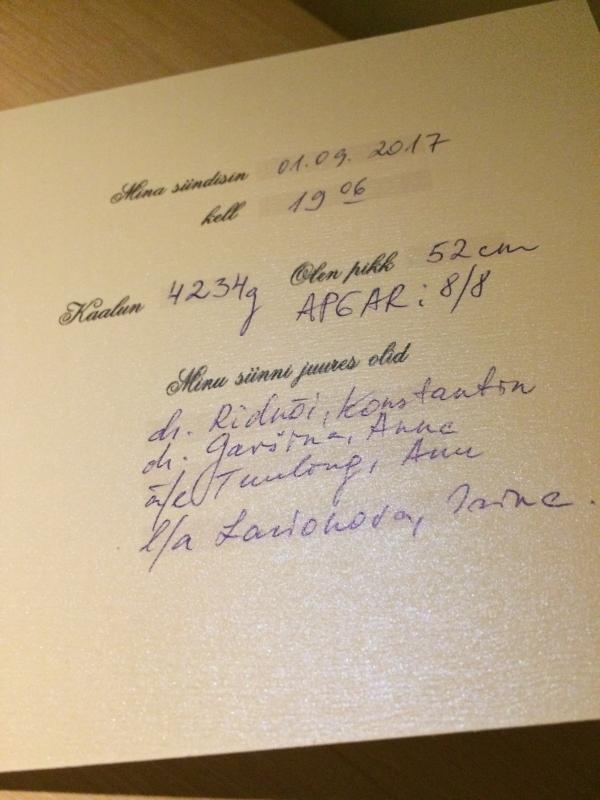 Mina sündisin 01.09. 2017
kell 19 06
Kaalun 4234g Olen pikk 52 cm
APGAR: 8/8
Minu sünni juures olid
dr. Ridnõi, Konstantin
dr. Garšina, Anna
ä/e Tuulong, Anu
l/a Larionova, Irina.